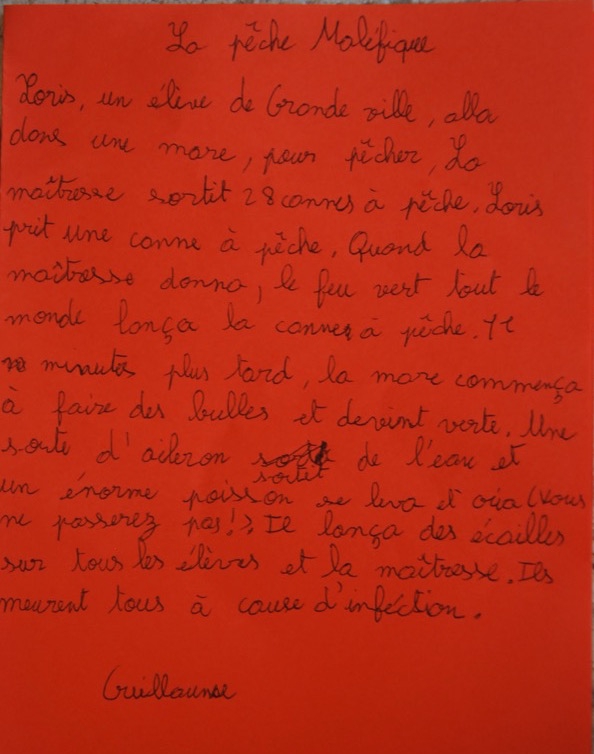 La pêche Maléfique
Loris, un élève de Grande ville, alla
dans une mare, pour pêcher, La
maîtresse sortit 28 cannes à pêche. Loris
prit une canne à pêche. Quand la
maîtresse donna, le feu vert tout le
monde lança la cannes à pêche.
minutes plus tard, la mare commença
à faire des bulles et devint verte. Une
sorte d'aileron sortit de l'eau et
un énorme poisson se leva et cria «Vous
ne passerez pas!». Il lança des écailles
sur tous les élèves et la maîtresse. Ils
meurent tous à cause d'infection.
Guillaume